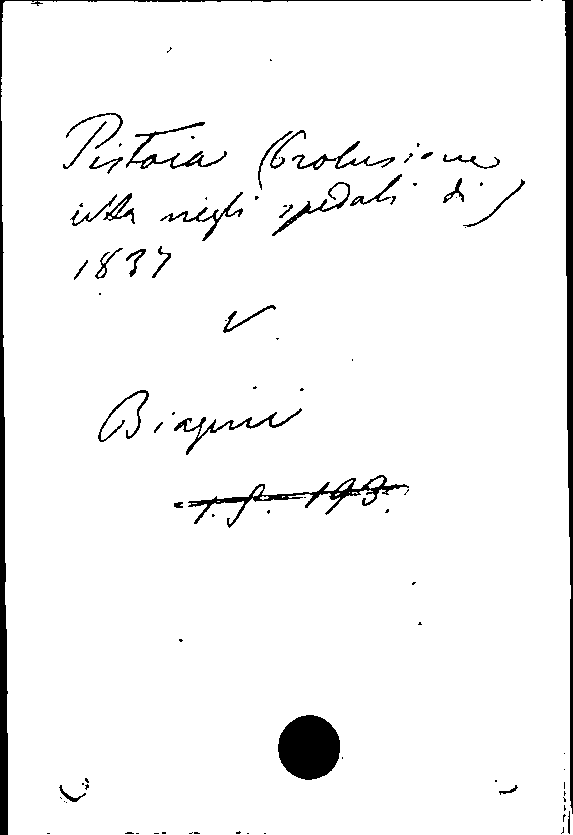 Pistoia (Prolusione
letta negli spedali di)
1837
v
Biagini
1. f. 193.